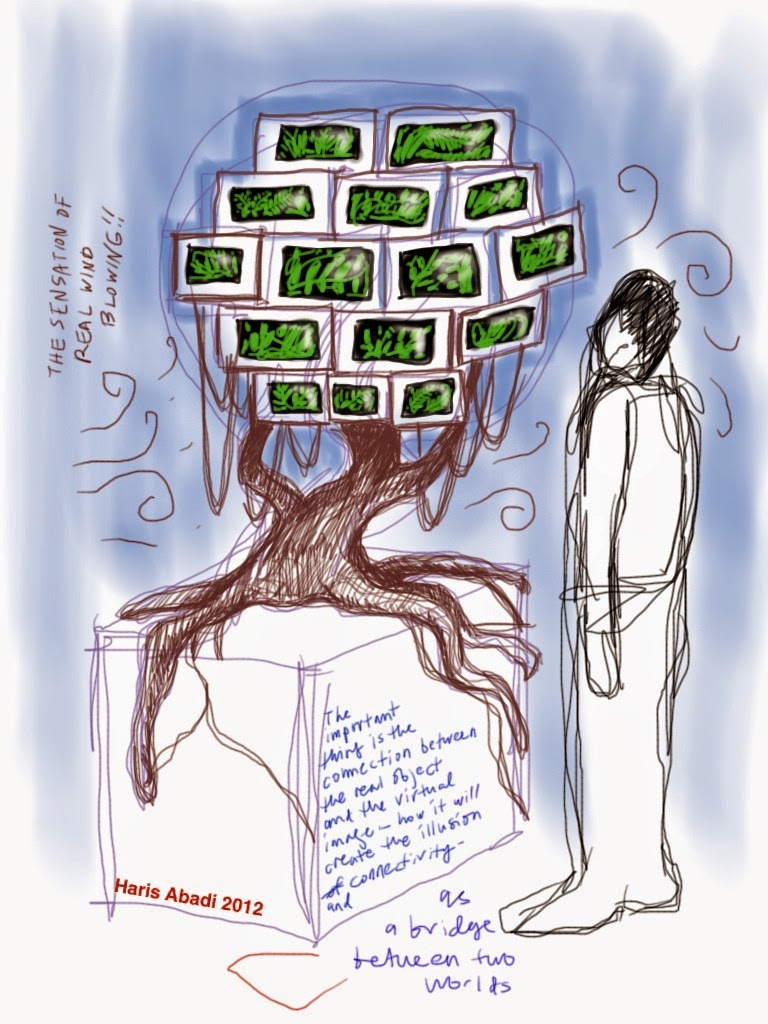 THE SENSATION OF
REAL WIND
BLOWING!!
The
important
thing is the
connection between
the real object
and the virtual
image – how it will
create the illusion
of connectivity –
and
as
a bridge
between two
worlds
Haris Abadi 2012